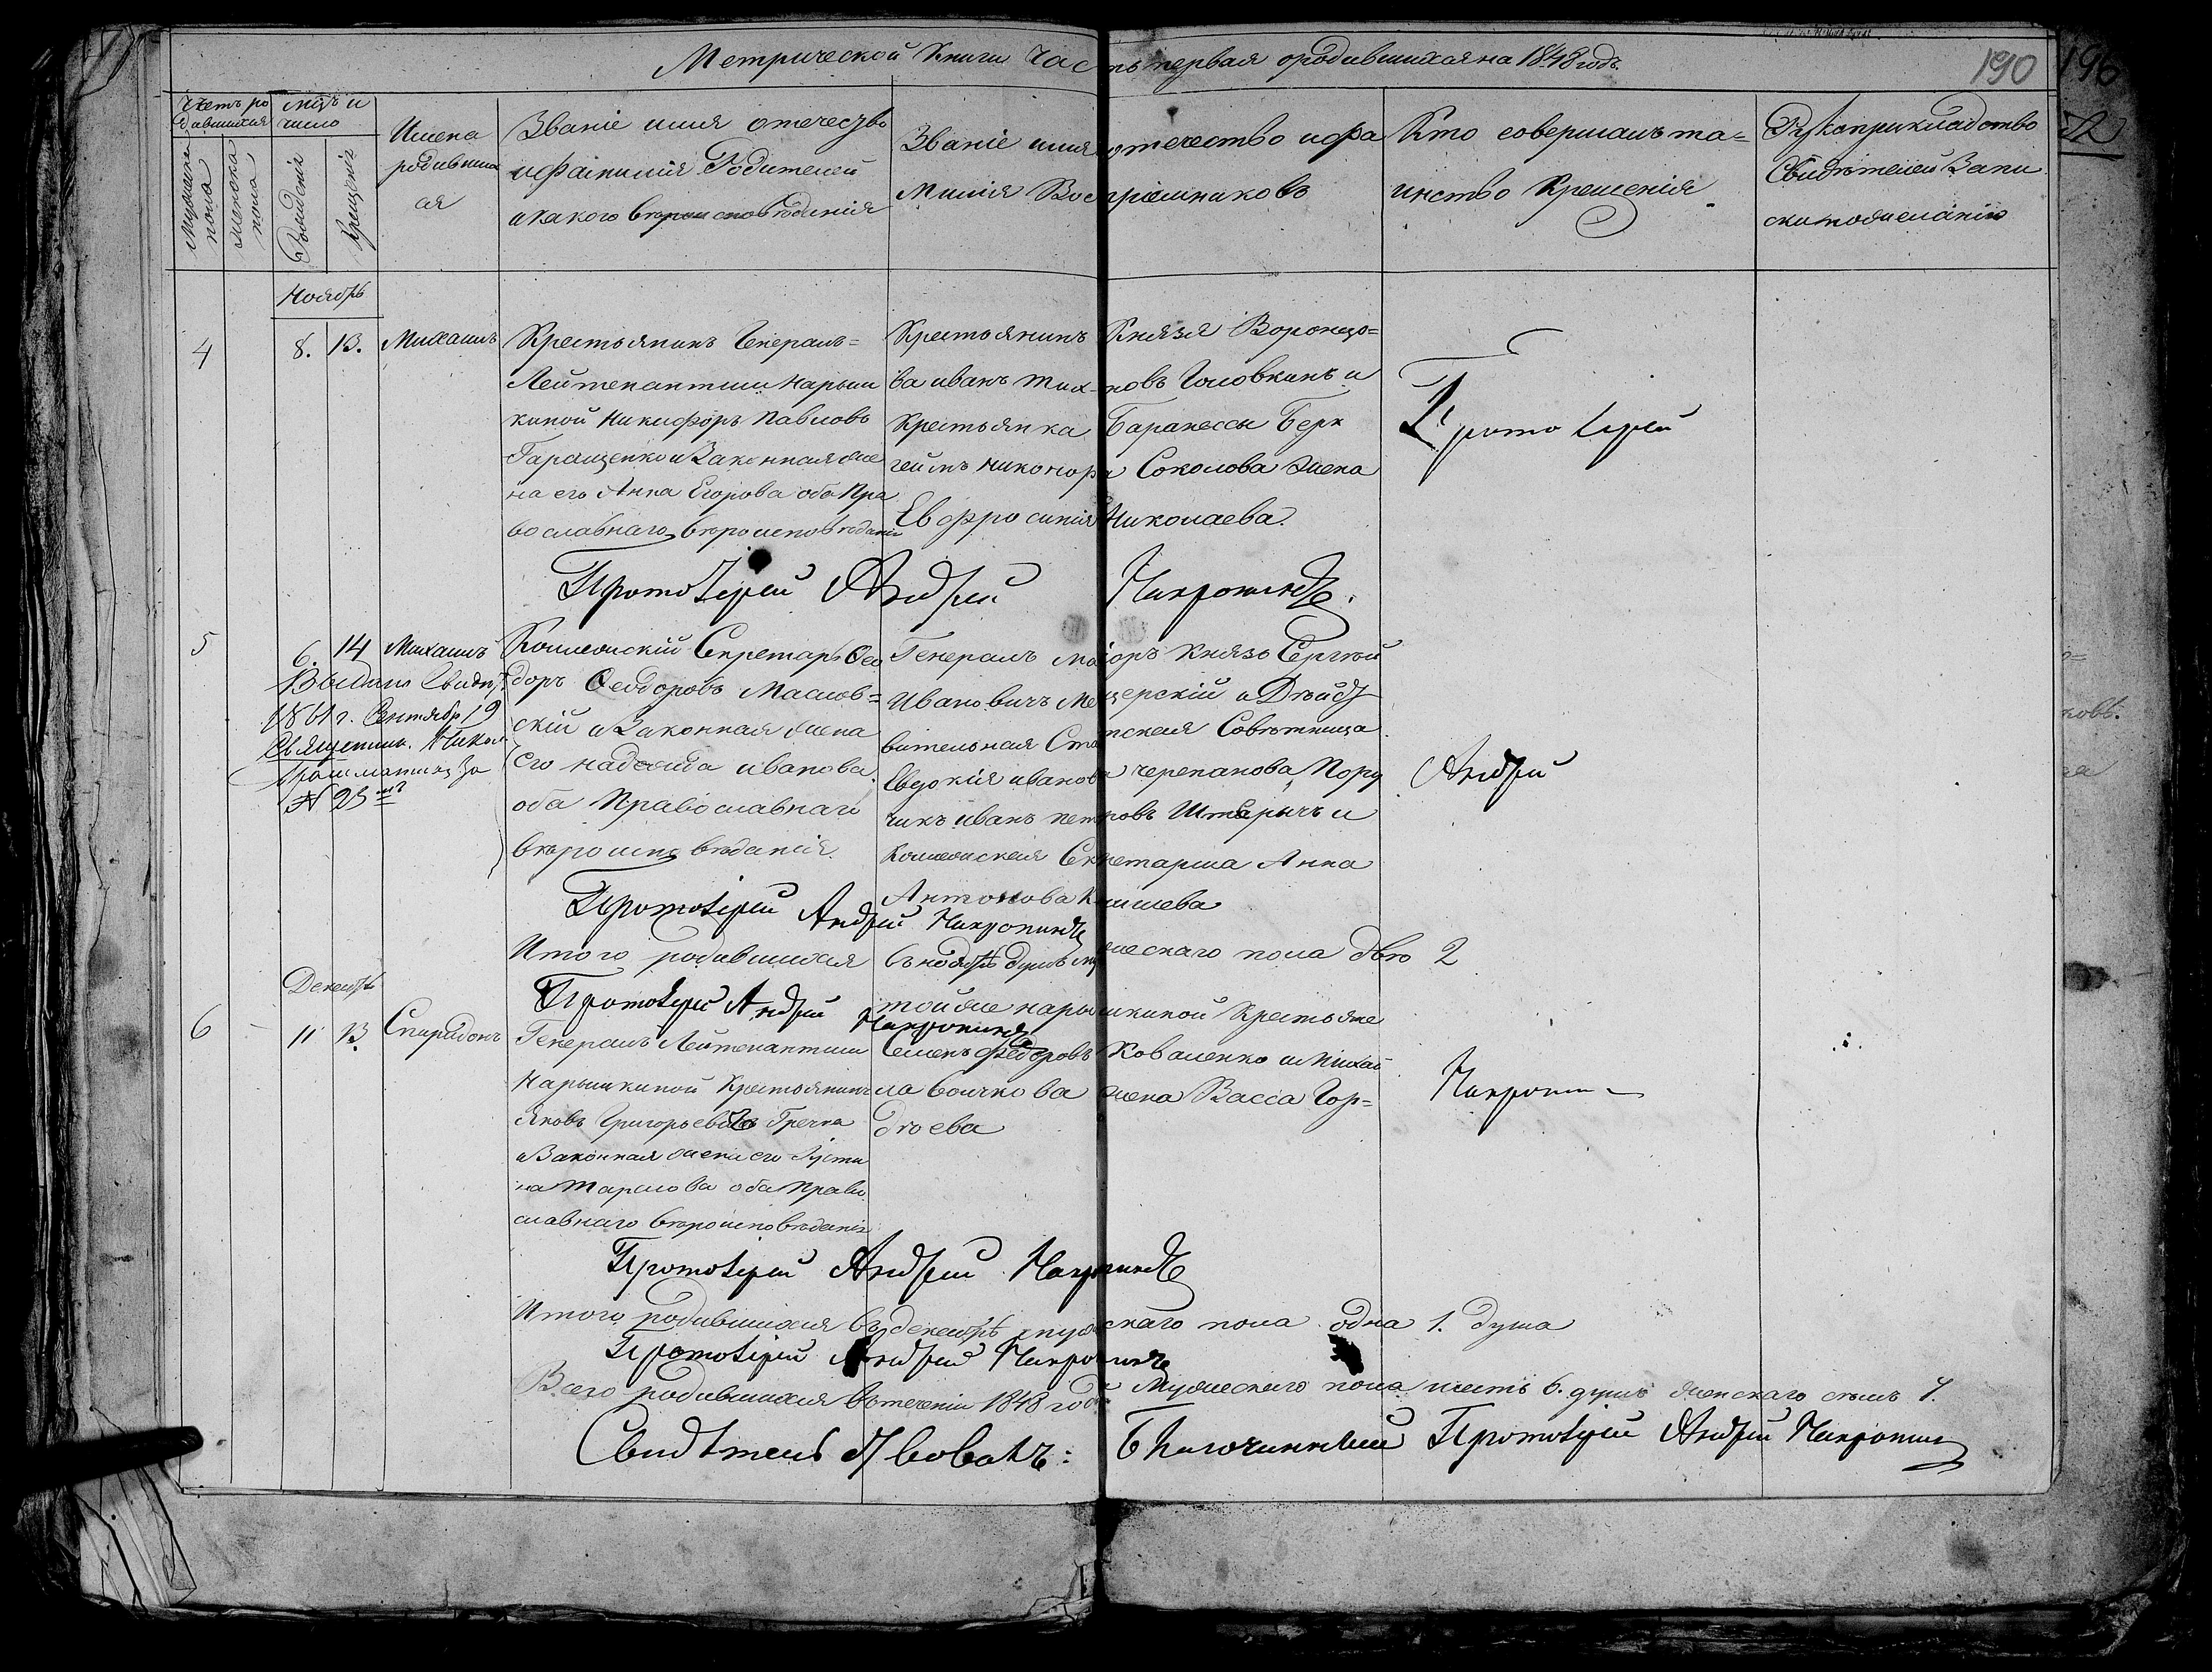 Метрической Книги Часть первая о родившихся на 1848 годъ.
190
196
Счетъ ро
дившихся
Мужеска
пола
Женска
пола
мцъ и
число
Рождение
Крещение
Имена
родивших
ся
Званіе имя отечество
и фамилия Родителей
и какого вероисповедания
Званіе имя отечество и фа
милия Восприемниковъ
Кто совершалъ та=
инство Крещенія
Рукоприкладство
Свидетелей Запи
си по желанию
Ноябрь
4
8. 13.
Михаилъ
Крестьянинъ Генералъ=
Лейтенантши Нарыш
киной Никифоръ Павловъ
Геращенко и Законная же
на его Анна Егорова оба Пра
вославнаго вероисповедания
Крестьянинъ Князя Воронцо=
ва иванъ тихоновъ Головкинъ и
Крестьянка Баранессы Берх
геймъ никонора Соколова жена
Евфросиния Николаева.
Протоіерей
Протоіерей Андрей
5
6. 14
Михаилъ
Выдано Свидет.
1861 г. Сентябр 19
Священник. Никол
за
N 25
Коллежскій Секретарь Фео
доръ Феодоровъ Маслов=
скій и Законная жена
его надежда иванова.
оба Православнаго
вероисповеданія.
Генералъ Маіоръ Князь Сергий
Ивановичъ Мещерскій и Дейст
вительная Статская Советница
Евдокія иванова черепанова, Пору
чикъ иванъ петровъ Штерычъ и
Коллежская Секретарша Анна
Антонова
Андрей
Протоіерей Андрей
Итого родившихся въ ноябре душъ мужескаго пола две 2
Протоіерей Андрей
Декабрь
6
11 13.
Спиридонъ
Генералъ Лейтенантши
Нарышкиной Крестьянинъ
Яковъ Григорьевъ Гречка
и Законная жена его Иусти
на Тарасова оба Право
славнаго вероисповедания
той же нарышкиной Крестьяне
Семенъ Федоровъ Коваленко и Михаи
ла Бочкова жена Васса Гор=
деева
Протоіерей Андрей
Итого родившихся въ декабре мужскаго пола одна 1. душа
Протоіерей Андрей
Всего родившихся въ течении 1848 года Мужескаго пола шесть 6. душъ женскаго семь 7.
Благочинный Протоіерей Андрей